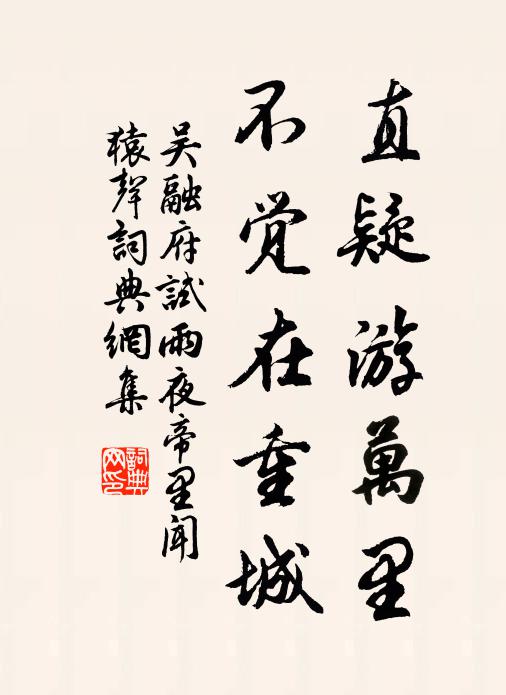 直疑游萬里
不觉在重城
吴融府試雨夜帝里聞
猿聲詞典網集
詞典
网印